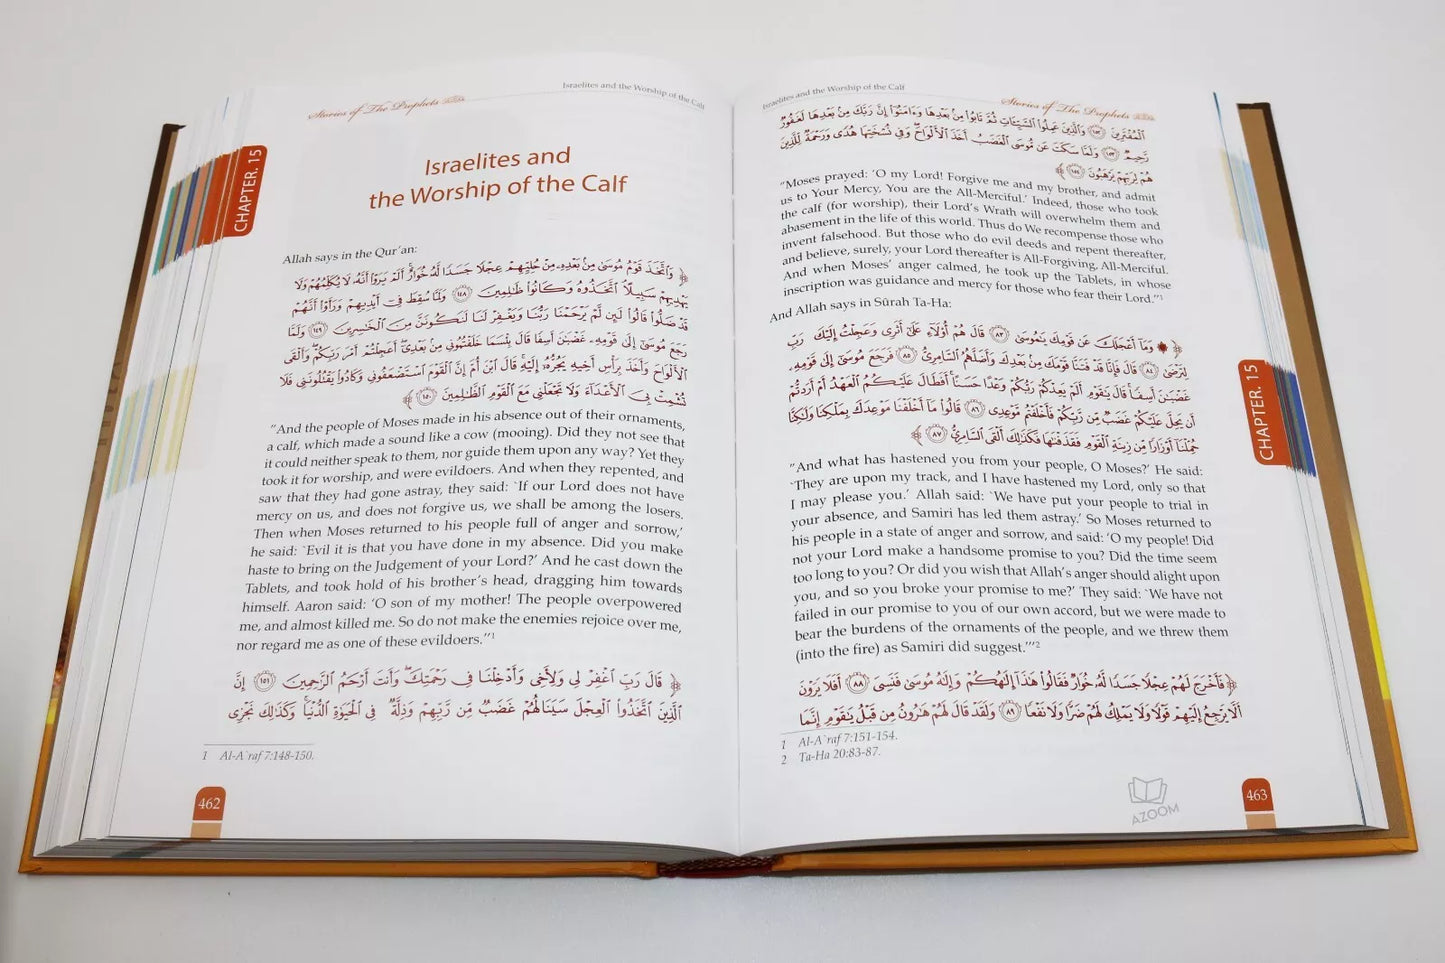 Israelites and the Worship of the Calf
Stories of The Prophets
CHAPTER. 15
Israelites and
the Worship of the Calf
Allah says in the Qur'an:
﴿ وَاتَّخَذَ قَوْمُ مُوسَىٰ مِنْ بَعْدِهِ مِنْ حُلِيِّهِمْ عِجْلًا جَسَدًا لَهُ خُوَارٌ أَلَمْ يَرَوْا أَنَّهُ لَا يُكَلِّمُهُمْ وَلَا
يَهْدِيهِمْ سَبِيلًا اتَّخَذُوهُ وَكَانُوا ظَالِمِينَ ١٤٨ وَلَمَّا سُقِطَ فِي أَيْدِيهِمْ وَرَأَوْا أَنَّهُمْ
قَدْ ضَلُّوا قَالُوا لَئِنْ لَمْ يَرْحَمْنَا رَبُّنَا وَيَغْفِرْ لَنَا لَنَكُونَنَّ مِنَ الْخَاسِرِينَ ١٤٩ وَلَمَّا
رَجَعَ مُوسَىٰ إِلَىٰ قَوْمِهِ غَضْبَانَ أَسِفًا قَالَ بِئْسَمَا خَلَفْتُمُونِي مِنْ بَعْدِي أَعَجِلْتُمْ أَمْرَ رَبِّكُمْ وَأَلْقَى
الْأَلْوَاحَ وَأَخَذَ بِرَأْسِ أَخِيهِ يَجُرُّهُ إِلَيْهِ قَالَ ابْنَ أُمَّ إِنَّ الْقَوْمَ اسْتَضْعَفُونِي وَكَادُوا يَقْتُلُونَنِي فَلَا
تُشْمِتْ بِيَ الْأَعْدَاءَ وَلَا تَجْعَلْنِي مَعَ الْقَوْمِ الظَّالِمِينَ ١٥٠ ﴾
"And the people of Moses made in his absence out of their ornaments,
a calf, which made a sound like a cow (mooing). Did they not see that
it could neither speak to them, nor guide them upon any way? Yet they
took it for worship, and were evildoers. And when they repented, and
saw that they had gone astray, they said: `If our Lord does not have
mercy on us, and does not forgive us, we shall be among the losers.
Then when Moses returned to his people full of anger and sorrow,'
he said: `Evil it is that you have done in my absence. Did you make
haste to bring on the Judgement of your Lord?' And he cast down the
Tablets, and took hold of his brother's head, dragging him towards
himself. Aaron said: 'O son of my mother! The people overpowered
me, and almost killed me. So do not make the enemies rejoice over me,
nor regard me as one of these evildoers."1
﴿ قَالَ رَبِّ اغْفِرْ لِي وَلِأَخِي وَأَدْخِلْنَا فِي رَحْمَتِكَ وَأَنْتَ أَرْحَمُ الرَّاحِمِينَ ١٥١ إِنَّ
الَّذِينَ اتَّخَذُوا الْعِجْلَ سَيَنَالُهُمْ غَضَبٌ مِنْ رَبِّهِمْ وَذِلَّةٌ فِي الْحَيَاةِ الدُّنْيَا وَكَذَٰلِكَ نَجْزِي
1 Al-A`raf 7:148-150.
462
Israelites and the Worship of the Calf
Stories of The Prophets
الْمُفْتَرِينَ ١٥٢ وَالَّذِينَ عَمِلُوا السَّيِّئَاتِ ثُمَّ تَابُوا مِنْ بَعْدِهَا وَآمَنُوا إِنَّ رَبَّكَ مِنْ بَعْدِهَا لَغَفُورٌ
رَحِيمٌ ١٥٣ وَلَمَّا سَكَتَ عَنْ مُوسَى الْغَضَبُ أَخَذَ الْأَلْوَاحَ وَفِي نُسْخَتِهَا هُدًى وَرَحْمَةٌ لِلَّذِينَ
هُمْ لِرَبِّهِمْ يَرْهَبُونَ ١٥٤ ﴾
"Moses prayed: 'O my Lord! Forgive me and my brother, and admit
us to Your Mercy, You are the All-Merciful.' Indeed, those who took
the calf (for worship), their Lord's Wrath will overwhelm them and
abasement in the life of this world. Thus do We recompense those who
invent falsehood. But those who do evil deeds and repent thereafter,
and believe, surely, your Lord thereafter is All-Forgiving, All-Merciful.
And when Moses' anger calmed, he took up the Tablets, in whose
inscription was guidance and mercy for those who fear their Lord."1
And Allah says in Sûrah Ta-Ha:
﴿ وَمَا أَعْجَلَكَ عَنْ قَوْمِكَ يَا مُوسَىٰ ٨٣ قَالَ هُمْ أُولَاءِ عَلَىٰ أَثَرِي وَعَجِلْتُ إِلَيْكَ رَبِّ
لِتَرْضَىٰ ٨٤ قَالَ فَإِنَّا قَدْ فَتَنَّا قَوْمَكَ مِنْ بَعْدِكَ وَأَضَلَّهُمُ السَّامِرِيُّ ٨٥ فَرَجَعَ مُوسَىٰ إِلَىٰ قَوْمِهِ
غَضْبَانَ أَسِفًا قَالَ يَا قَوْمِ أَلَمْ يَعِدْكُمْ رَبُّكُمْ وَعْدًا حَسَنًا أَفَطَالَ عَلَيْكُمُ الْعَهْدُ أَمْ أَرَدْتُمْ
أَنْ يَحِلَّ عَلَيْكُمْ غَضَبٌ مِنْ رَبِّكُمْ فَأَخْلَفْتُمْ مَوْعِدِي ٨٦ قَالُوا مَا أَخْلَفْنَا مَوْعِدَكَ بِمَلْكِنَا وَلَٰكِنَّا
حُمِّلْنَا أَوْزَارًا مِنْ زِينَةِ الْقَوْمِ فَقَذَفْنَاهَا فَكَذَٰلِكَ أَلْقَى السَّامِرِيُّ ٨٧ ﴾
"And what has hastened you from your people, O Moses?' He said:
`They are upon my track, and I have hastened my Lord, only so that
I may please you.' Allah said: `We have put your people to trial in
your absence, and Samiri has led them astray.' So Moses returned to
his people in a state of anger and sorrow, and said: 'O my people! Did
not your Lord make a handsome promise to you? Did the time seem
too long to you? Or did you wish that Allah's anger should alight upon
you, and so you broke your promise to me?' They said: `We have not
failed in our promise to you of our own accord, but we were made to
bear the burdens of the ornaments of the people, and we threw them
(into the fire) as Samiri did suggest.'"2
﴿ فَأَخْرَجَ لَهُمْ عِجْلًا جَسَدًا لَهُ خُوَارٌ فَقَالُوا هَٰذَا إِلَٰهُكُمْ وَإِلَٰهُ مُوسَىٰ فَنَسِيَ ٨٨ أَفَلَا يَرَوْنَ
أَلَّا يَرْجِعُ إِلَيْهِمْ قَوْلًا وَلَا يَمْلِكُ لَهُمْ ضَرًّا وَلَا نَفْعًا ٨٩ وَلَقَدْ قَالَ لَهُمْ هَارُونُ مِنْ قَبْلُ يَا قَوْمِ إِنَّمَا
1 Al-A`raf 7:151-154.
2 Ta-Ha 20:83-87.
CHAPTER. 15
463
AZOOM